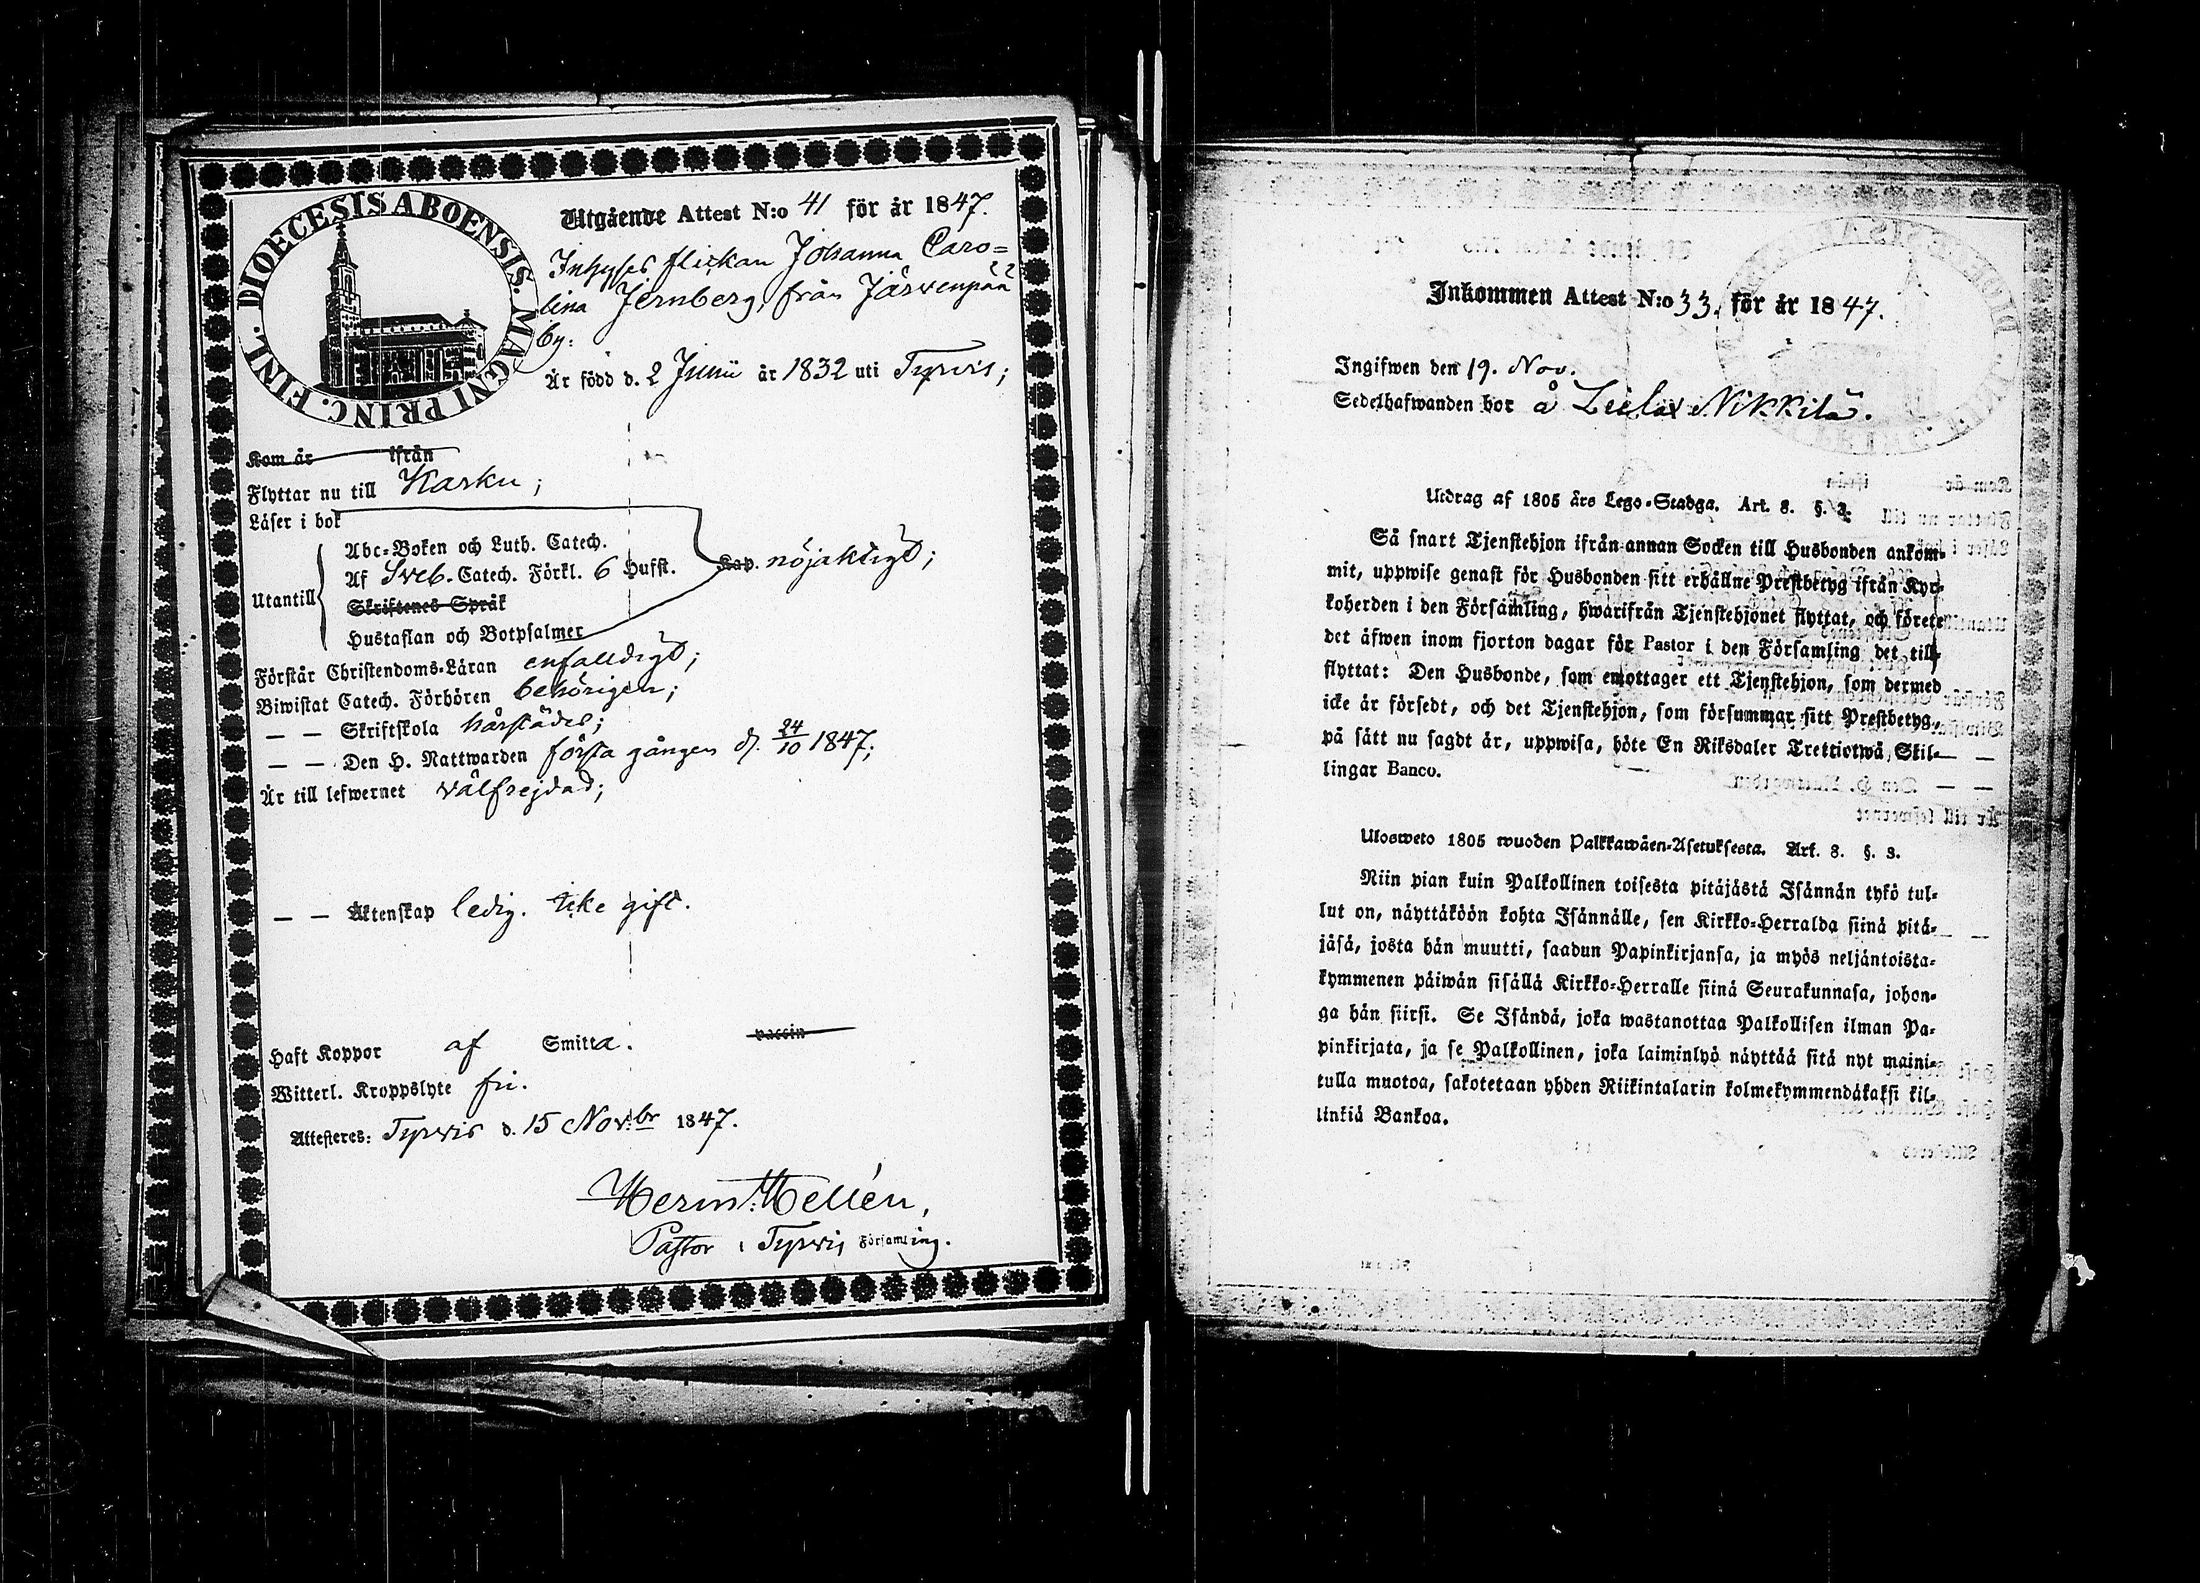 DIOECESIS ABOENSIS. MAGNI PRINC. FINL.
Utgående Attest N:o 41 för år 1847.
Inhyses flickan Johanna Caro=
lina Jernberg, från Järvenpää
by:
Är född d. 2 Junii år 1832 uti Tyrvis;
Kom år ifrån
Flyttar nu till Karku;
Läser i bok
Abc-Boken och Luth. Catech.
Af Sveb. Catech. Förkl. 6 Hufst. Kap. nöjaktigt;
Utantill
Skriftenes Språk
Hustaflan och Botpsalmer
Förstår Christendoms-Läran enfalldigt;
Biwistat Catech. Förhören behörigen;
— — Skriftskola härstädes;
— — Den H. Nattwarden första gången d. 24/10 1847;
Är till lefwernet välfrejdad;
— — Äktenskap ledig. icke gift.
Haft Koppor af Smitta. vaccin
Witterl. Kroppslyte fri.
Attesteres: Tyrvis d. 15 Nov:br 1847.
Herm. Hellén,
Pastor i Tyrvis Församling.
Inkommen Attest N:o 33. för år 1847.
Ingifwen den 19. Nov.
Sedelhafwanden bor å Nikkilä.
Utdrag af 1805 års Lego-Stadga. Art. 8. §. 3.
Så snart Tjenstehjon ifrån annan Socken till Husbonden ankom-
mit, uppwise genast för Husbonden sitt erhållne Prestbetyg ifrån Kyr-
koherden i den Församling, hwarifrån Tjenstehjonet flyttat, och förete
det äfwen inom fjorton dagar för Pastor i den Församling det till-
flyttat: Den Husbonde, som emottager ett Tjenstehjon, som dermed
icke är försedt, och det Tjenstehjon, som försummar sitt Prestbetyg,
på sätt nu sagdt är, uppwisa, böte En Riksdaler Trettiotwå Skil-
lingar Banco.
Ulosweto 1805 wuoden Palkkawäen-Asetuksesta. Art. 8. §. 3.
Niin pian kuin Palkollinen toisesta pitäjästä Isännän tykö tul-
lut on, näyttäköön kohta Isännälle, sen Kirkko-Herralda siinä pitä-
jäsä, josta hän muutti, saadun Papinkirjansa, ja myös neljäntoista-
kymmenen päiwän sisällä Kirkko-Herralle siinä Seurakunnasa, johon-
ga hän siirsi. Se Isändä, joka wastanottaa Palkollisen ilman Pa-
pinkirjata, ja se Palkollinen, joka laiminlyö näyttää sitä nyt maini-
tulla muotoa, sakotetaan yhden Riikintalarin kolmekymmendäkaksi kil-
linkiä Bankoa.